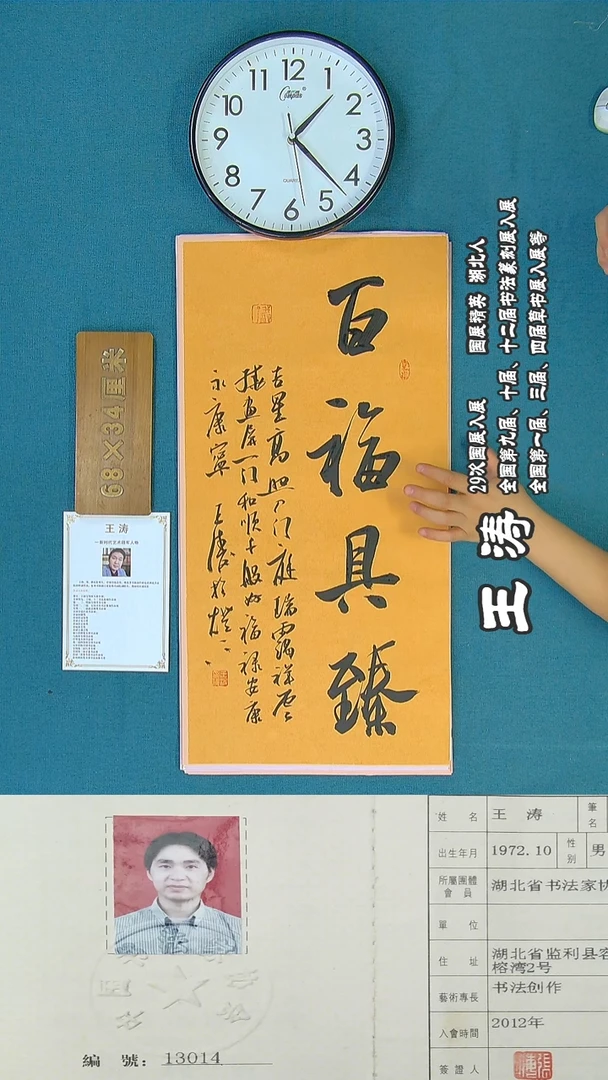 12
1
2
3
4
5
6
7
8
9
10
11
QUARTZ
百福具臻
吉星高照人门庭瑞霭祥云
绕画居一门和顺十般好福禄安康
永康宁 王涛
68×34厘米
王涛
29次国展入展 国展精英 湖北人
全国第九届、十届、十二届书法篆刻展入展
全国第一届、三届、四届草书展入展等
王涛
姓 名 王 涛 筆名
出生年月 1972.10 性别 男
所屬團體會員 湖北省书法家协
單 位
住 址 湖北省监利县容
榕湾2号
藝術專長 书法创作
入會時間 2012年
簽證人
編 號: 13014